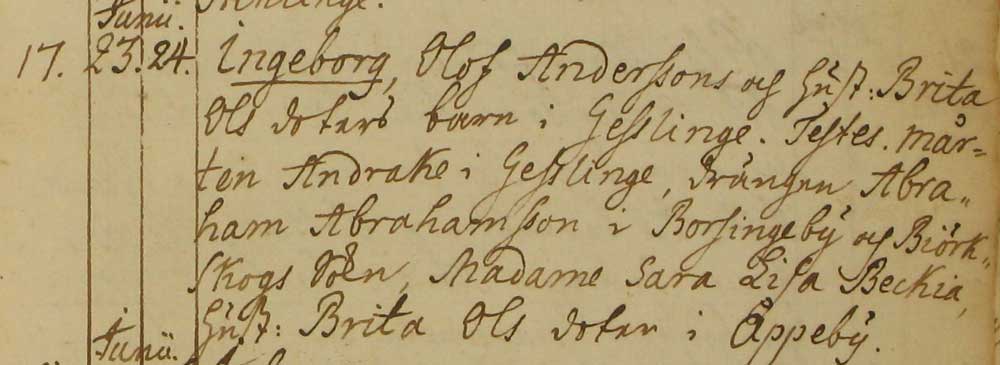 Junii.
17. 23. 24. Ingeborg, Olof Anderssons och Hust: Brita
Ols doters barn i Gesslinge. Testes. Mår-
ten Andrake i Gesslinge, drängen Abra„
ham Abrahamsson i Borsingeby och Biörk„
skogs Söen, Madame Sara Lisa Beckia,
Hust: Brita Ols doter i Äppeby.
Junii.